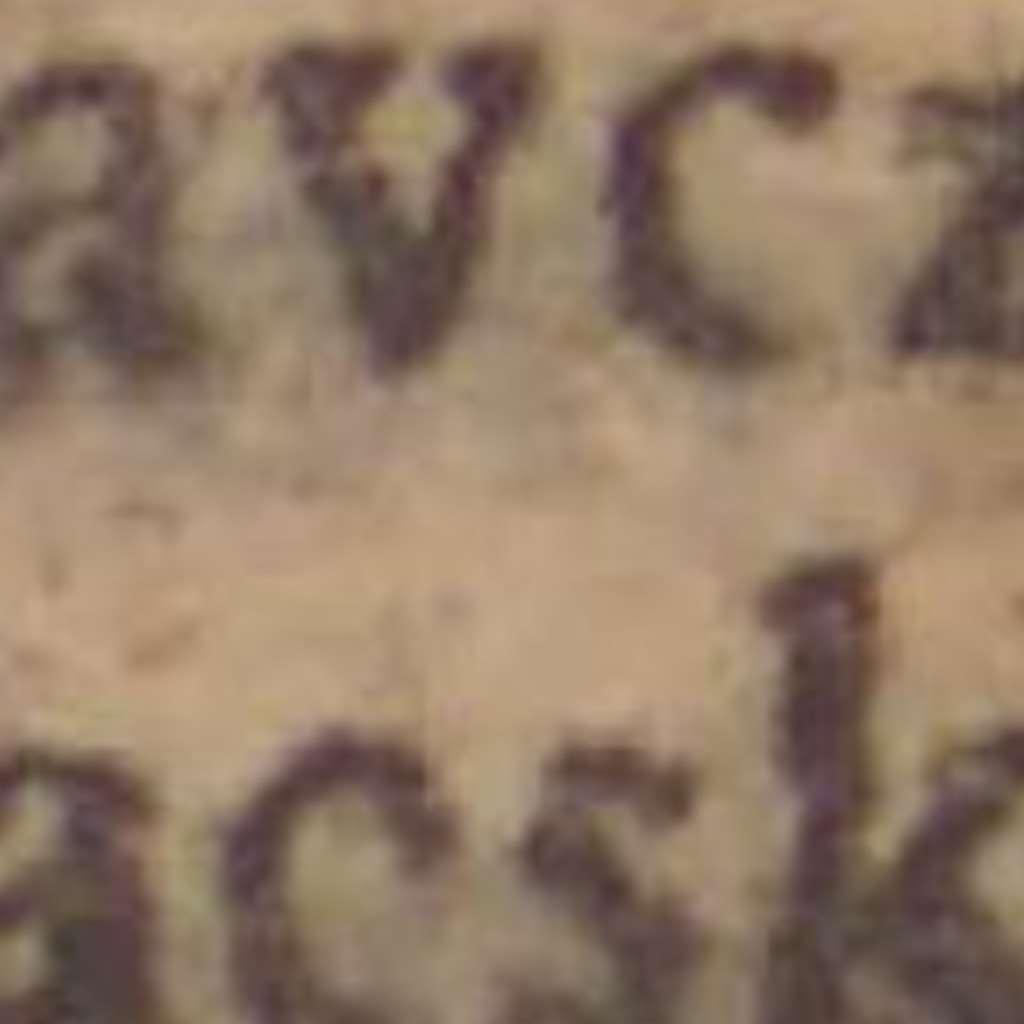 avcz
acsk